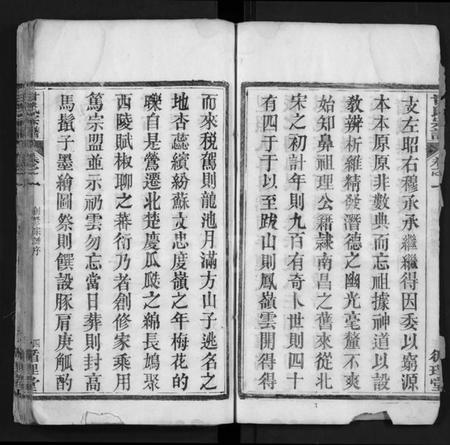 支左昭右穆承承繼繼得因委以窮源
本本原原非數典而忘祖據神道以設
教辨析維精發潛德之幽光毫釐不爽
始知鼻祖理公籍隸南昌之舊來從北
宋之初計年則九百有奇卜世則四十
有四于于以至跋山則鳳嶺雲開得得
而來稅駕則龍池月滿方山子逃名之
地杏蕊繽紛蘇文忠度嶺之年梅花的
皪自是鶯遷北楚慶瓜瓞之綿長鴆聚
西陵賦椒聊之蕃衍乃者創修家乘用
篤宗盟並示礽雲勿忘當日葬則封高
馬鬣子墨繪圖祭則饌設豚肩庚觚酌
卷之一
理堂